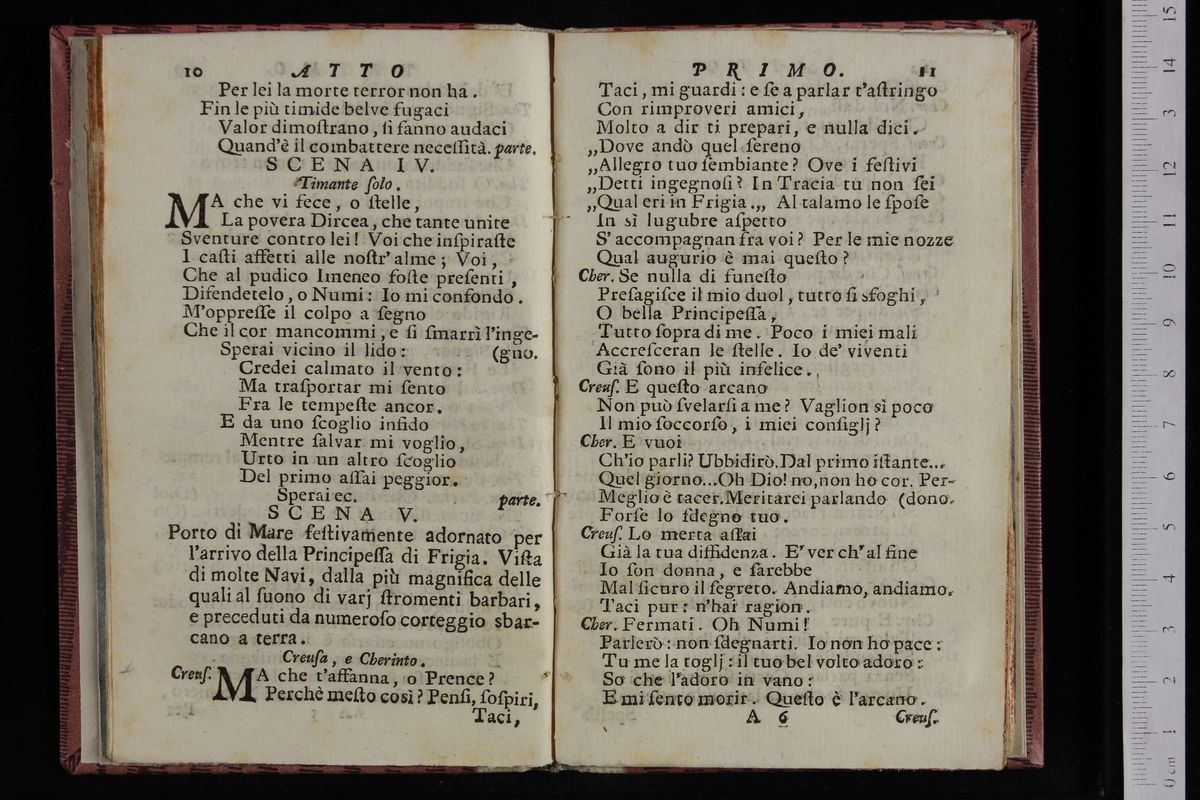 10 ATTO
Per lei la morte terror non ha.
Fin le più timide belve fugaci
Valor dimoſtrano, ſi fanno audaci
Quand'è il combattere neceſſità. parte.
SCENA IV.
Timante ſolo.
MA che vi fece, o ſtelle,
La povera Dircea, che tante unite
Sventure contro lei! Voi che inſpiraſte
I caſti affetti alle noſtr' alme; Voi,
Che al pudico Imeneo foſte preſenti,
Difendetelo, o Numi: Io mi confondo.
M'oppreſſe il colpo a ſegno
Che il cor mancommi, e ſi ſmarrì l'inge-
Sperai vicino il lido: (gno.
Credei calmato il vento:
Ma traſportar mi ſento
Fra le tempeſte ancor.
E da uno ſcoglio infido
Mentre ſalvar mi voglio,
Urto in un altro ſcoglio
Del primo aſſai peggior.
Sperai ec. parte.
SCENA V.
Porto di Mare feſtivamente adornato per
l'arrivo della Principeſſa di Frigia. Viſta
di molte Navi, dalla più magnifica delle
quali al ſuono di varj ſtromenti barbari,
e preceduti da numeroſo corteggio sbar-
cano a terra.
Creuſa, e Cherinto.
Creuſ. MA che t'affanna, o Prence?
Perchè meſto così? Penſi, ſoſpiri,
Taci,
PRIMO. 11
Taci, mi guardi: e ſe a parlar t'aſtringo
Con rimproveri amici,
Molto a dir ti prepari, e nulla dici.
„Dove andò quel ſereno
„Allegro tuo ſembiante? Ove i feſtivi
„Detti ingegnoſi? In Tracia tu non ſei
„Qual eri in Frigia.„ Al talamo le ſpoſe
In sì lugubre aſpetto
S' accompagnan fra voi? Per le mie nozze
Qual augurio è mai queſto?
Cher. Se nulla di funeſto
Preſagiſce il mio duol, tutto ſi sfoghi,
O bella Principeſſa,
Tutto ſopra di me. Poco i miei mali
Accreſceran le ſtelle. Io de' viventi
Già ſono il più infelice.
Creuſ. E queſto arcano
Non può ſvelarſi a me? Vaglion sì poco
Il mio ſoccorſo, i miei conſiglj?
Cher. E vuoi
Ch'io parli? Ubbidirò. Dal primo iſtante...
Quel giorno...Oh Dio! no, non ho cor. Per-
Meglio è tacer. Meritarei parlando (dono.
Forſe lo ſdegno tuo.
Creuſ. Lo merta aſſai
Già la tua diffidenza. E' ver ch' al fine
Io ſon donna, e ſarebbe
Mal ſicuro il ſegreto. Andiamo, andiamo.
Taci pur: n'hai ragion.
Cher. Fermati. Oh Numi!
Parlerò: non ſdegnarti. Io non ho pace:
Tu me la toglj: il tuo bel volto adoro:
So che l'adoro in vano:
E mi ſento morir. Queſto è l'arcano.
A 6 Creuſ.
0 cm 1 2 3 4 5 6 7 8 9 10 11 12 13 14 15